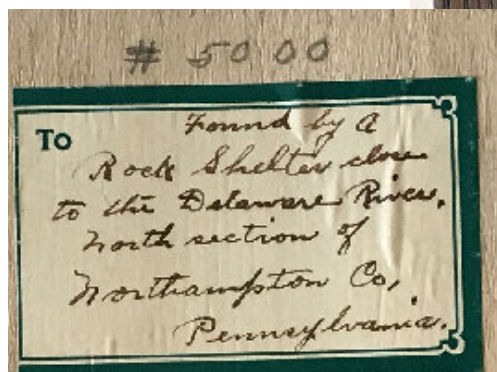 # 5000
To
Found by a
Rock Shelter close
to the Delaware River,
North section of
Northampton Co,
Pennsylvania.